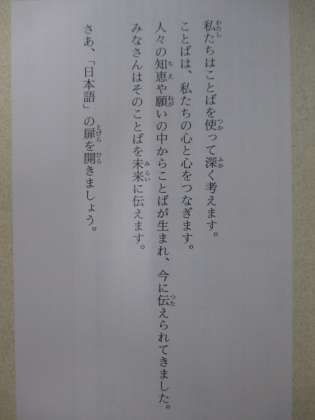 私たちはことばを使って深く考えます。
ことばは、私たちの心と心をつなぎます。
人々の知恵や願いの中からことばが生まれ、今に伝えられてきました。
みなさんはそのことばを未来に伝えます。
さあ、「日本語」の扉を開きましょう。